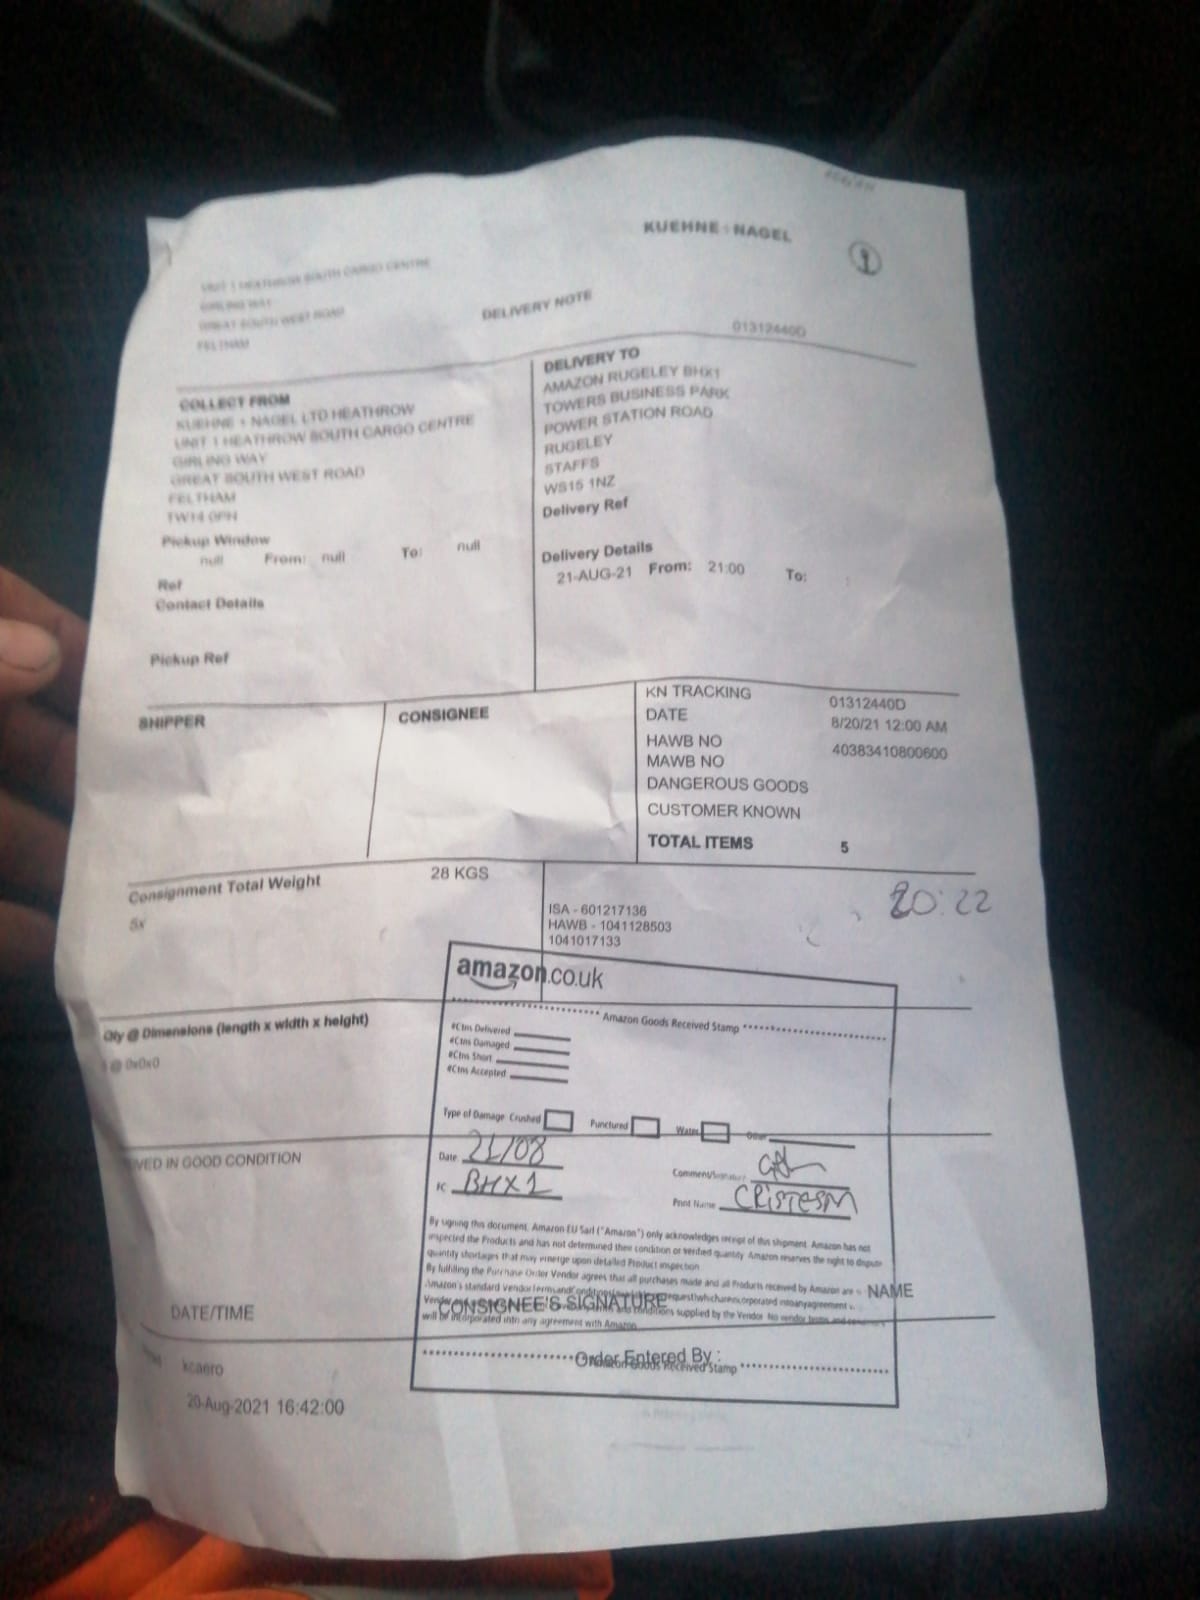 KUEHNE + NAGEL
UNIT 1 HEATHROW SOUTH CARGO CENTRE
GIRLING WAY
GREAT SOUTH WEST ROAD
FELTHAM
DELIVERY NOTE
01312440D
COLLECT FROM
KUEHNE + NAGEL LTD HEATHROW
UNIT 1 HEATHROW SOUTH CARGO CENTRE
GIRLING WAY
GREAT SOUTH WEST ROAD
FELTHAM
TW14 0PH
Pickup Window
null From: null To: null
Ref
Contact Details
Pickup Ref
DELIVERY TO
AMAZON RUGELEY BHX1
TOWERS BUSINESS PARK
POWER STATION ROAD
RUGELEY
STAFFS
WS15 1NZ
Delivery Ref
Delivery Details
21-AUG-21 From: 21:00 To: :
SHIPPER
CONSIGNEE
KN TRACKING 01312440D
DATE 8/20/21 12:00 AM
HAWB NO 40383410800600
MAWB NO
DANGEROUS GOODS
CUSTOMER KNOWN
TOTAL ITEMS 5
Consignment Total Weight 28 KGS
5x
ISA - 601217136
HAWB - 1041128503
1041017133
20:22
Qty @ Dimensions (length x width x height)
@ 0x0x0
amazon.co.uk
Amazon Goods Received Stamp
#Ctns Delivered
#Ctns Damaged
#Ctns Short
#Ctns Accepted
Type of Damage Crushed Punctured Water Other
Date 21/08
FC BHX1
Comment/Signature
Print Name CRISTESM
VED IN GOOD CONDITION
By signing this document, Amazon EU Sarl ("Amazon") only acknowledges receipt of this shipment. Amazon has not
inspected the Products and has not determined their condition or verified quantity. Amazon reserves the right to dispute
quantity shortages that may emerge upon detailed Product inspection
By fulfilling the Purchase Order Vendor agrees that all purchases made and all Products received by Amazon are
Amazon's standard Vendor Terms and Conditions
conditions supplied by the Vendor. No vendor terms and
will be incorporated into any agreement with Amazon
NAME
CONSIGNEE'S SIGNATURE
DATE/TIME
Order Entered By :
Amazon Goods Received Stamp
kcaero
20-Aug-2021 16:42:00